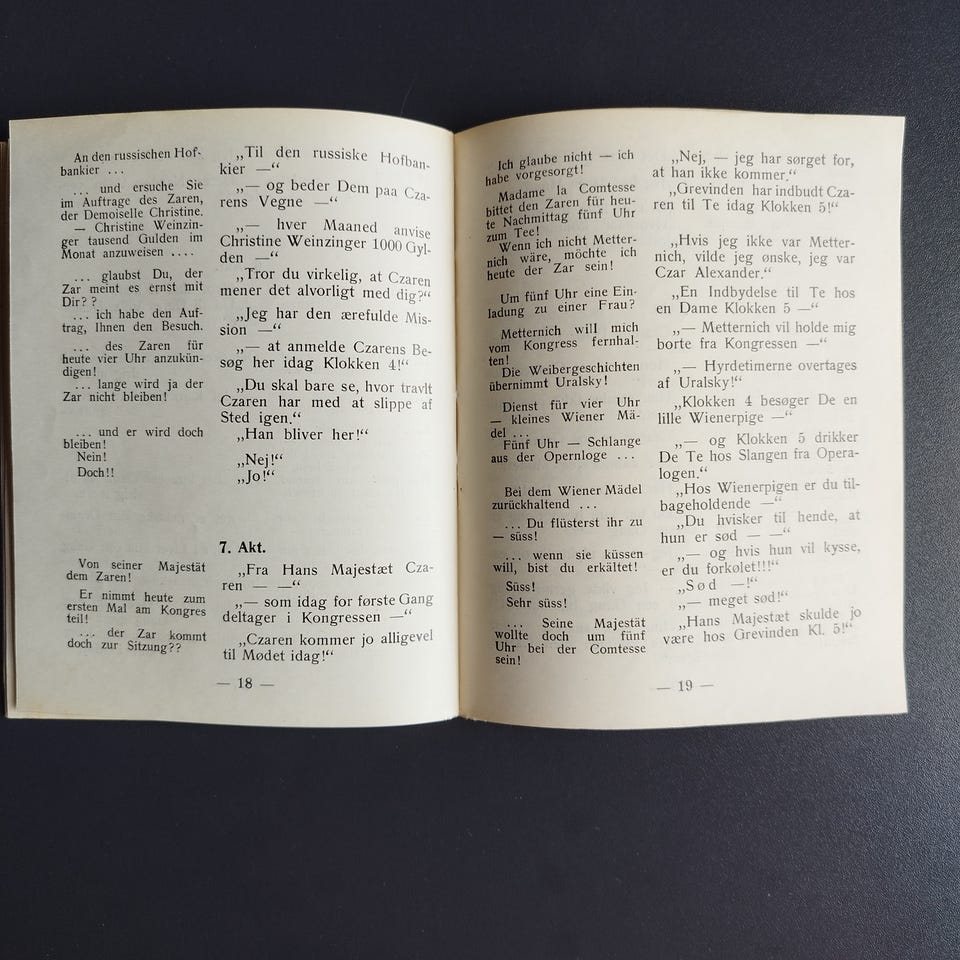 An den russischen Hof-
bankier ...
... und ersuche Sie
im Auftrage des Zaren,
der Demoiselle Christine.
— Christine Weinzin-
ger tausend Gulden im
Monat anzuweisen ....
... glaubst Du, der
Zar meint es ernst mit
Dir? ?
... ich habe den Auf-
trag, Ihnen den Besuch.
... des Zaren für
heute vier Uhr anzukün-
digen!
... lange wird ja der
Zar nicht bleiben!
... und er wird doch
bleiben!
Nein!
Doch!!
Von seiner Majestät
dem Zaren!
Er nimmt heute zum
ersten Mal am Kongres
teil!
... der Zar kommt
doch zur Sitzung??
„Til den russiske Hofban-
kier —“
„— og beder Dem paa Cza-
rens Vegne —“
„— hver Maaned anvise
Christine Weinzinger 1000 Gyl-
den —“
„Tror du virkelig, at Czaren
mener det alvorligt med dig?“
„Jeg har den ærefulde Mis-
sion —“
„— at anmelde Czarens Be-
søg her idag Klokken 4!“
„Du skal bare se, hvor travlt
Czaren har med at slippe af
Sted igen.“
„Han bliver her!“
„Nej!“
„Jo!“
7. Akt.
„Fra Hans Majestæt Cza-
ren — —“
„— som idag for første Gang
deltager i Kongressen —“
„Czaren kommer jo alligevel
til Mødet idag!“
— 18 —
Ich glaube nicht — ich
habe vorgesorgt!
Madame la Comtesse
bittet den Zaren für heu-
te Nachmittag fünf Uhr
zum Tee!
Wenn ich nicht Metter-
nich wäre, möchte ich
heute der Zar sein!
Um fünf Uhr eine Ein-
ladung zu einer Frau?
Metternich will mich
vom Kongress fernhal-
ten!
Die Weibergeschichten
übernimmt Uralsky!
Dienst für vier Uhr
— kleines Wiener Mä-
del ...
Fünf Uhr — Schlange
aus der Opernloge ...
Bei dem Wiener Mädel
zurückhaltend ...
... Du flüsterst ihr zu
— süss!
... wenn sie küssen
will, bist du erkältet!
Süss!
Sehr süss!
... Seine Majestät
wollte doch um fünf
Uhr bei der Comtesse
sein!
„Nej, — jeg har sørget for,
at han ikke kommer.“
„Grevinden har indbudt Cza-
ren til Te idag Klokken 5!“
„Hvis jeg ikke var Metter-
nich, vilde jeg ønske, jeg var
Czar Alexander.“
„En Indbydelse til Te hos
en Dame Klokken 5 —“
„— Metternich vil holde mig
borte fra Kongressen —“
„— Hyrdetimerne overtages
af Uralsky!“
„Klokken 4 besøger De en
lille Wienerpige —“
„— og Klokken 5 drikker
De Te hos Slangen fra Opera-
logen.“
„Hos Wienerpigen er du til-
bageholdende —“
„Du hvisker til hende, at
hun er sød — —“
„— og hvis hun vil kysse,
er du forkølet!!!“
„Sød —!“
„— meget sød!“
„Hans Majestæt skulde jo
være hos Grevinden Kl. 5!“
— 19 —